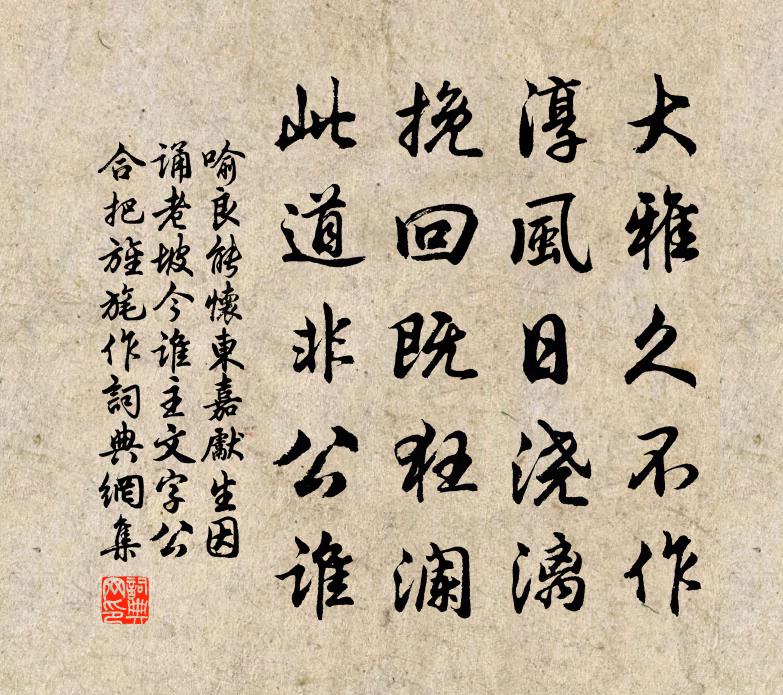 大雅久不作
淳風日浇漓
挽回既狂澜
此道非公谁
喻良能懷東嘉獻生因
诵老坡今谁主文字公
合把旌旄作詞典網集
詞典网印